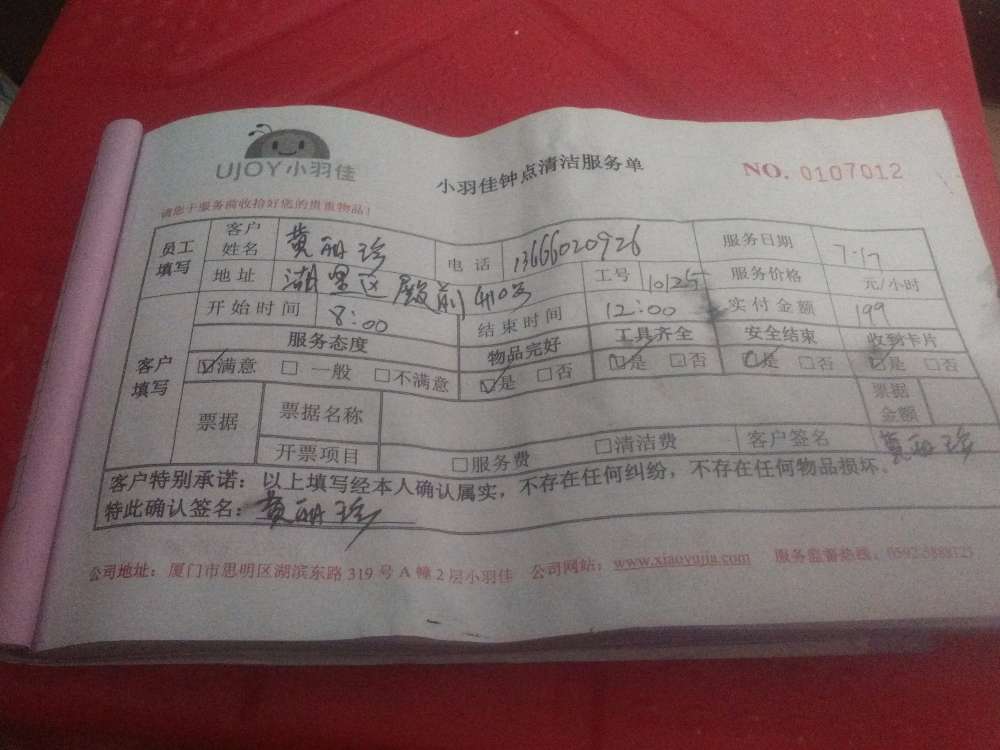 UJOY小羽佳
小羽佳钟点清洁服务单
NO. 0107012
请您于服务前收拾好您的贵重物品!
员工填写 客户姓名 黄丽珍 电话 13666020926 服务日期 7.17
地址 湖里区殿前410号 工号 1025 服务价格 元/小时
客户填写 开始时间 8:00 结束时间 12:00 实付金额 199
服务态度 物品完好 工具齐全 安全结束 收到卡片
☑满意 □一般 □不满意 ☑是 □否 ☑是 □否 ☑是 □否 ☑是 □否
票据 票据名称 票据金额
开票项目 □服务费 □清洁费 客户签名 黄丽珍
客户特别承诺：以上填写经本人确认属实，不存在任何纠纷，不存在任何物品损坏。
特此确认签名：黄丽珍
公司地址：厦门市思明区湖滨东路319号A幢2层小羽佳 公司网站：www.xiaoyujia.com 服务监督热线：0592-5888725